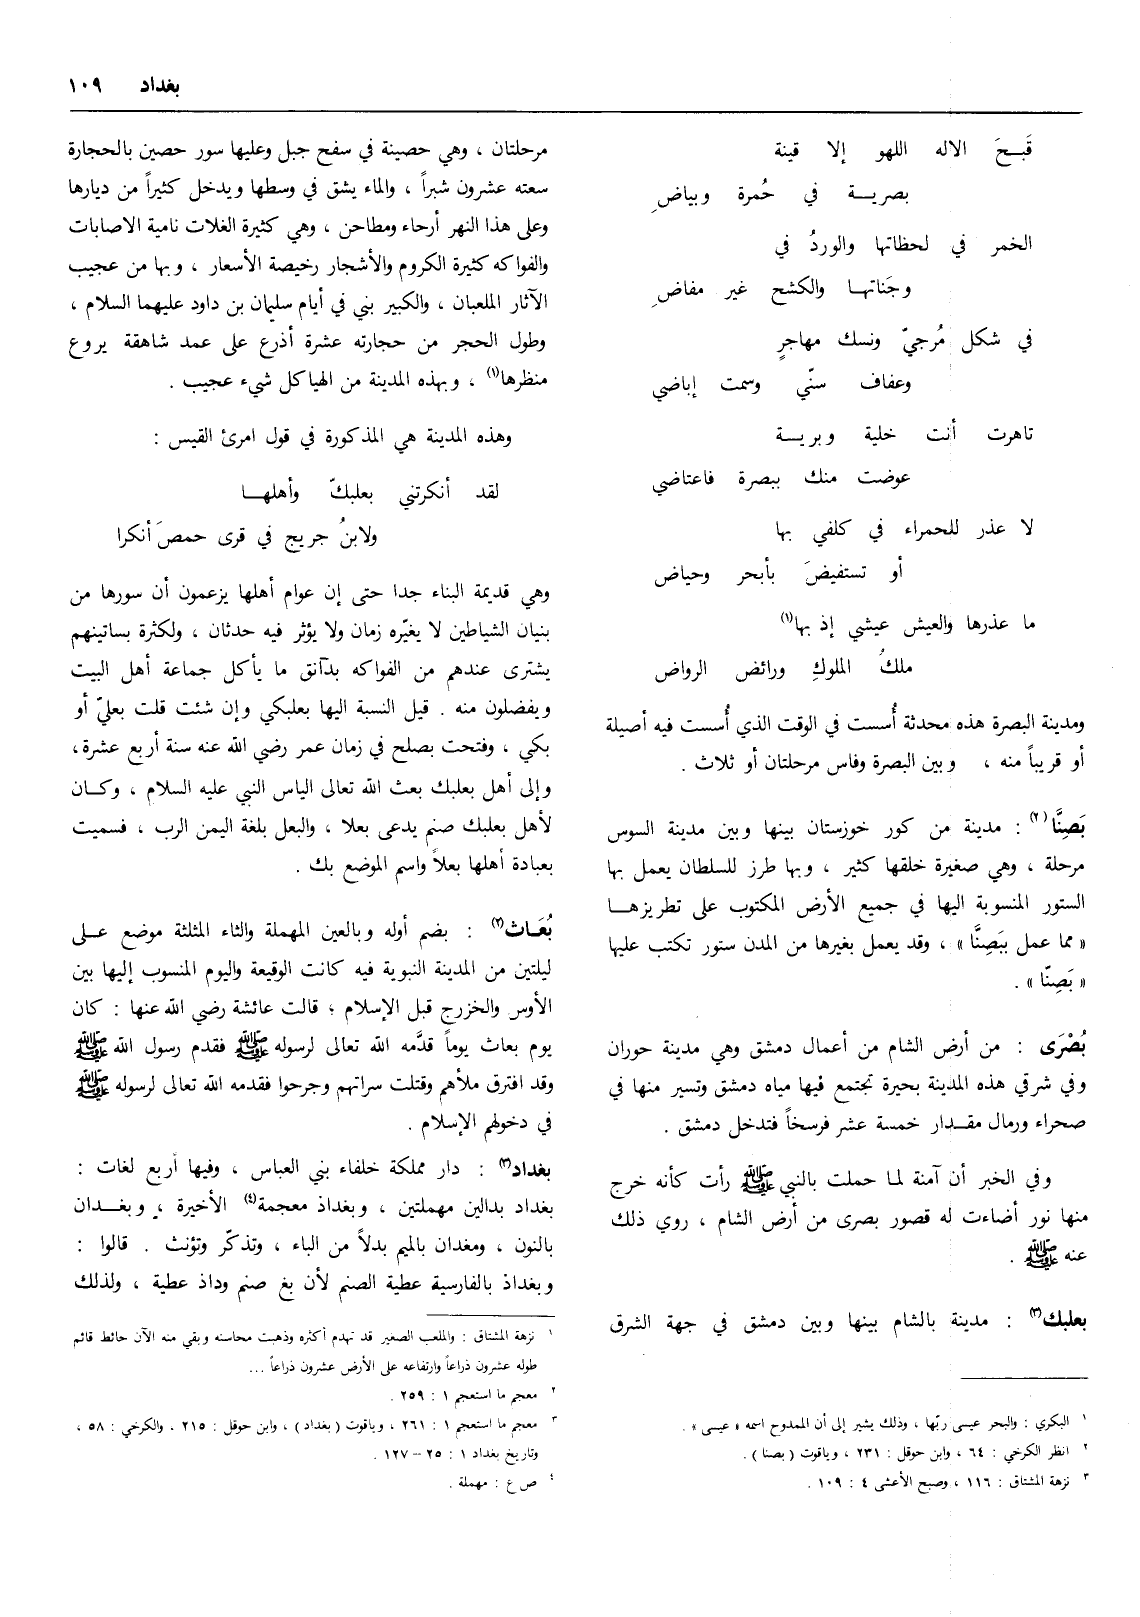 بغداد ١٠٩
قَبـحَ الاله اللهو إلا قينة
بصريـــة في حُمرة وبياضِ
الخمر في لحظاتها والوردُ في
وجَناتهـا والكشح غير مفاضِ
في شكل مُرجيّ ونسك مهاجرٍ
وعفاف سنّي وسمت إباضي
تاهرت أنت خلية وبريـــة
عوضت منك ببصرة فاعتاضي
لا عذر للحمراء في كلفي بها
أو تستفيضَ بأبحر وحياض
ما عذرها والعيش عيشي إذ بها(١)
ملكُ الملوكِ ورائض الرواض
ومدينة البصرة هذه محدثة أُسست في الوقت الذي أُسست فيه أصيلة
أو قريباً منه ، وبين البصرة وفاس مرحلتان أو ثلاث .
بَصِنَّا(٢) : مدينة من كور خوزستان بينها وبين مدينة السوس
مرحلة ، وهي صغيرة خلقها كثير ، وبها طرز للسلطان يعمل بها
الستور المنسوبة اليها في جميع الأرض المكتوب على تطريزهـــا
« مما عمل ببَصِنَّا » ، وقد يعمل بغيرها من المدن ستور تكتب عليها
« بَصِنّا » .
بُصْرَى : من أرض الشام من أعمال دمشق وهي مدينة حوران
وفي شرقي هذه المدينة بحيرة تجتمع فيها مياه دمشق وتسير منها في
صحراء ورمال مقـدار خمسة عشر فرسخاً فتدخل دمشق .
وفي الخبر أن آمنة لما حملت بالنبي ﷺ رأت كأنه خرج
منها نور أضاءت له قصور بصرى من أرض الشام ، روي ذلك
عنه ﷺ .
بعلبك(٣) : مدينة بالشام بينها وبين دمشق في جهة الشرق
١ البكري : والبحر عيسى ربّها ، وذلك يشير إلى أن الممدوح اسمه « عيسى » .
٢ انظر الكرخي : ٦٤ ، وابن حوقل : ٢٣١ ، وياقوت ( بصنا ) .
٣ نزهة المشتاق : ١١٦ ، وصبح الأعشى ٤ : ١٠٩ .
مرحلتان ، وهي حصينة في سفح جبل وعليها سور حصين بالحجارة
سعته عشرون شبراً ، والماء يشق في وسطها ويدخل كثيراً من ديارها
وعلى هذا النهر أرحاء ومطاحن ، وهي كثيرة الغلات نامية الاصابات
والفواكه كثيرة الكروم والأشجار رخيصة الأسعار ، وبها من عجيب
الآثار الملعبان ، والكبير بني في أيام سليمان بن داود عليهما السلام ،
وطول الحجر من حجارته عشرة أذرع على عمد شاهقة يروع
منظرها(١) ، وبهذه المدينة من الهياكل شيء عجيب .
وهذه المدينة هي المذكورة في قول امرئ القيس :
لقد أنكرتني بعلبكّ وأهلهـــا
ولابنُ جريج في قرى حمصَ أنكرا
وهي قديمة البناء جدا حتى إن عوام أهلها يزعمون أن سورها من
بنيان الشياطين لا يغيّره زمان ولا يؤثر فيه حدثان ، ولكثرة بساتينهم
يشترى عندهم من الفواكه بدآنق ما يأكل جماعة أهل البيت
ويفضلون منه . قيل النسبة اليها بعلبكي وإن شئت قلت بعليّ أو
بكي ، وفتحت بصلح في زمان عمر رضي الله عنه سنة أربع عشرة ،
وإلى أهل بعلبك بعث الله تعالى الياس النبي عليه السلام ، وكـــان
لأهل بعلبك صنم يدعى بعلا ، والبعل بلغة اليمن الرب ، فسميت
بعبادة أهلها بعلاً واسم الموضع بك .
بُعَـاث(٢) : بضم أوله وبالعين المهملة والثاء المثلثة موضع عـــلى
ليلتين من المدينة النبوية فيه كانت الوقيعة واليوم المنسوب إليها بين
الأوس والخزرج قبل الإسلام ؛ قالت عائشة رضي الله عنها : كان
يوم بعاث يوماً قدَّمه الله تعالى لرسوله ﷺ فقدم رسول الله ﷺ
وقد افترق ملأهم وقتلت سراتهم وجرحوا فقدمه الله تعالى لرسوله ﷺ
في دخولهم الإسلام .
بغداد(٣) : دار مملكة خلفاء بني العباس ، وفيها أربع لغات :
بغداد بدالين مهملتين ، وبغداذ معجمة(٤) الأخيرة ، وبغـــدان
بالنون ، ومغدان بالميم بدلاً من الباء ، وتذكّر وتؤنث . قالوا :
وبغداذ بالفارسية عطية الصنم لأن بغ صنم وداذ عطية ، ولذلك
١ نزهة المشتاق : والملعب الصغير قد تهدم أكثره وذهبت محاسنه وبقي منه الآن حائط قائم
طوله عشرون ذراعاً وارتفاعه على الأرض عشرون ذراعاً ...
٢ معجم ما استعجم ١ : ٢٥٩ .
٣ معجم ما استعجم ١ : ٢٦١ ، وياقوت ( بغداد ) ، وابن حوقل : ٢١٥ . والكرخي : ٥٨ ،
وتاريخ بغداد ١ : ٢٥ – ١٢٧ .
٤ ص ع : مهملة .